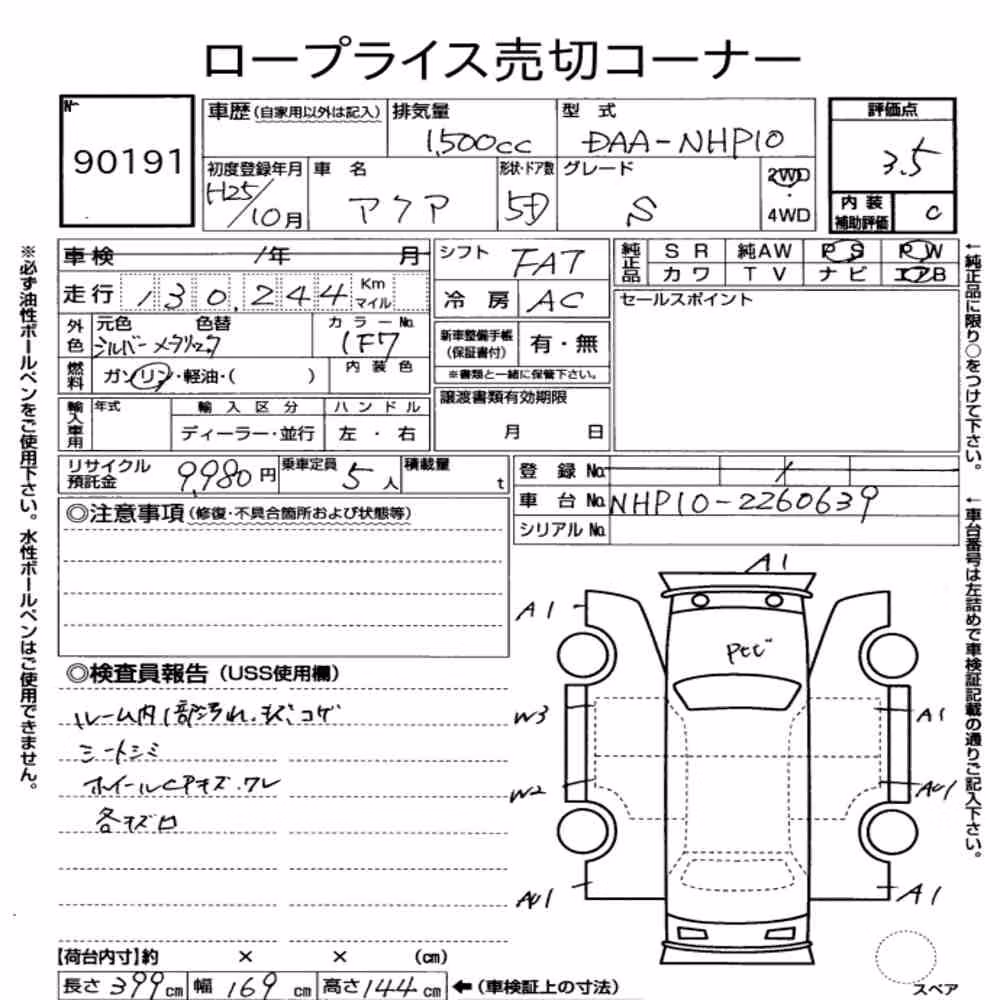 ロープライス売切コーナー
No 90191
車歴(自家用以外は記入) 排気量 1,500cc 型式 DAA-NHP10 評価点 3.5
初度登録年月 H25/10月 車名 アクア 形状・ドア数 5D グレード S 2WD・4WD 内装補助評価 C
車検 年 月 シフト FAT 純正品 SR 純AW PS PW
カワ TV ナビ エアB
走行 130,244 Km マイル 冷房 AC セールスポイント
外色 元色 色替 シルバーメタリック カラーNo. 1F7 新車整備手帳(保証書付) 有・無
※書類と一緒に保管下さい。
燃料 ガソリン・軽油・( ) 内装色 譲渡書類有効期限 月 日
輸入車用 年式 輸入区分 ディーラー・並行 ハンドル 左・右
リサイクル預託金 9,980円 乗車定員 5人 積載量 t 登録No.
車台No. NHP10-2260639
シリアルNo.
◎注意事項(修復・不具合箇所および状態等)
◎検査員報告(USS使用欄)
ルーム内1部汚れ、キズ、コゲ
シートシミ
ホイールCPキズ、ワレ
各キズ
A1
A1
Pとび
W3 A1
W2
A1
スペア
【荷台内寸】約 × × (cm)
長さ 399cm 幅 169cm 高さ 144cm ←(車検証上の寸法)
※必ず油性ボールペンをご使用下さい。水性ボールペンはご使用できません。
←純正品に限り○をつけて下さい。
←車台番号は左詰めで車検証記載の通りご記入下さい。